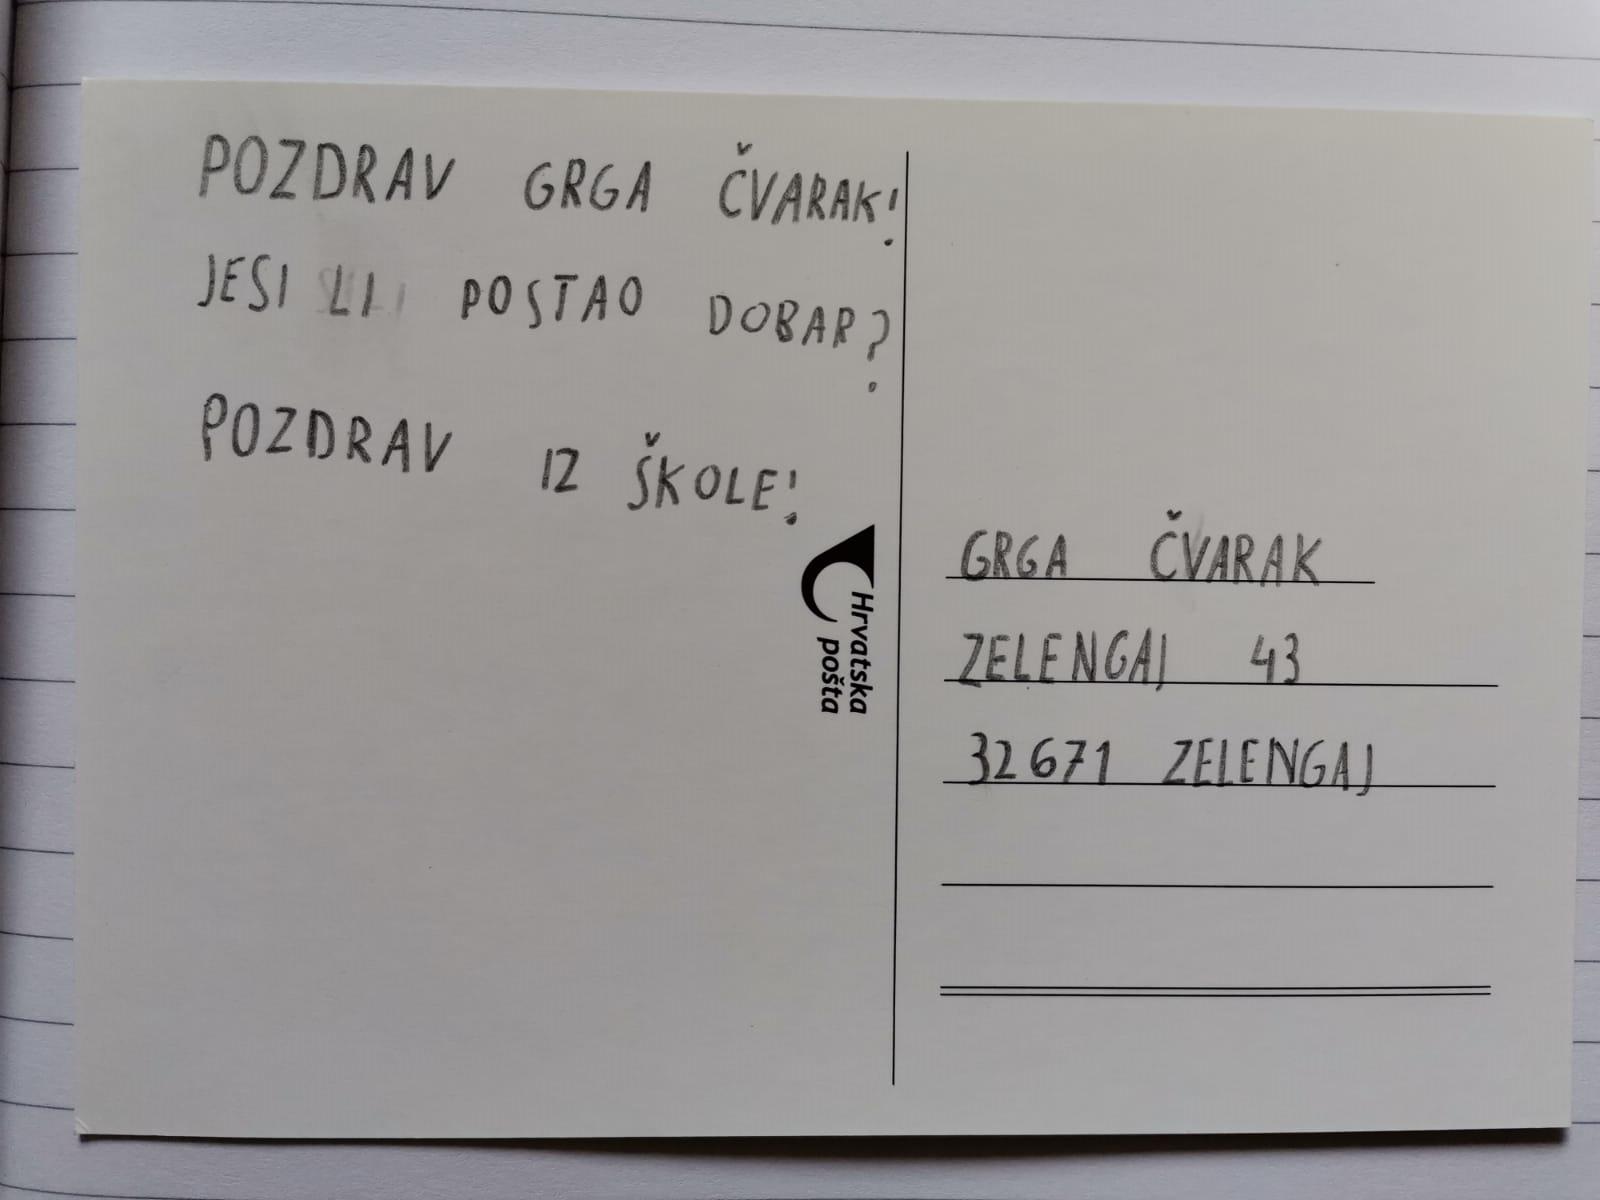 POZDRAV GRGA ČVARAK!
JESI LI POSTAO DOBAR?
POZDRAV IZ ŠKOLE!
Hrvatska
pošta
GRGA ČVARAK
ZELENGAJ 43
32671 ZELENGAJ